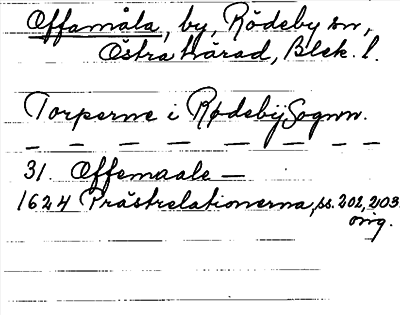 Æffamåla, by, Rödeby sn,
Östra härad, Blek. l.
Torperne i Rødeby Sognn.
31. Æffemaale —
1624 Prästrelationerna, ss. 202, 203
orig.